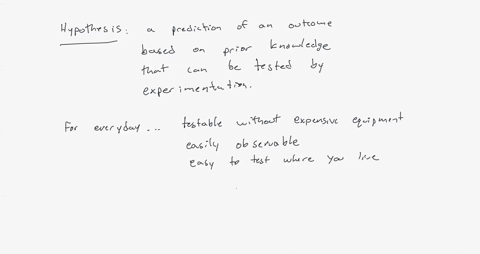 Hypothesis: a prediction of an outcome
based on prior knowledge
that can be tested by
experimentation.
For everyday... testable without expensive equipment
easily observable
easy to test where you live